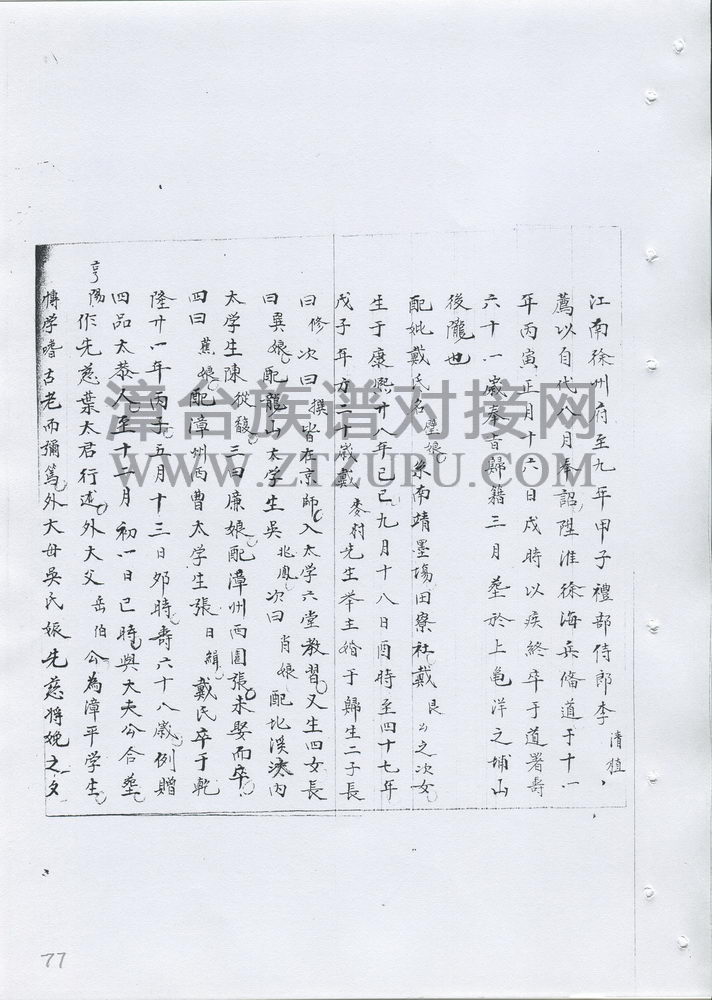 江南徐州府至九年甲子禮部侍郎李清植
薦以自代八月奉詔陞淮徐海兵備道于十一
年丙寅正月十六日戌時以疾終卒于道署壽
六十一歲奉旨歸籍三月塟於上龟洋之埔山
後隴也
配妣戴氏名娘系南靖墨塲田寮社戴艮公之次女
生于康熙廿八年己巳九月十八日酉時至四十七年
戊子年方二十歲戴先生举主婚于歸生二子長
曰修次曰撰皆在京師入太学六堂教習又生四女長
曰巽娘配龍山太学生吳兆鳳次曰肖娘配北溪內
太学生陳從馥三曰廉娘配漳州西園張未娶而卒
四曰蕉娘配漳州西曹太学生張日緝戴氏卒于乾
隆廿一年丙子五月十三日卯時壽六十八歲例贈
四品太恭人至十一月初一日已時與大夫公合塟
亨陽作先慈葉太君行述外大父岳伯公為漳平学生
博学嗜古老而彌篤外大母吳氏娠先慈将娩之夕
漳台族谱对接网
WWW.ZTZUPU.COM
77